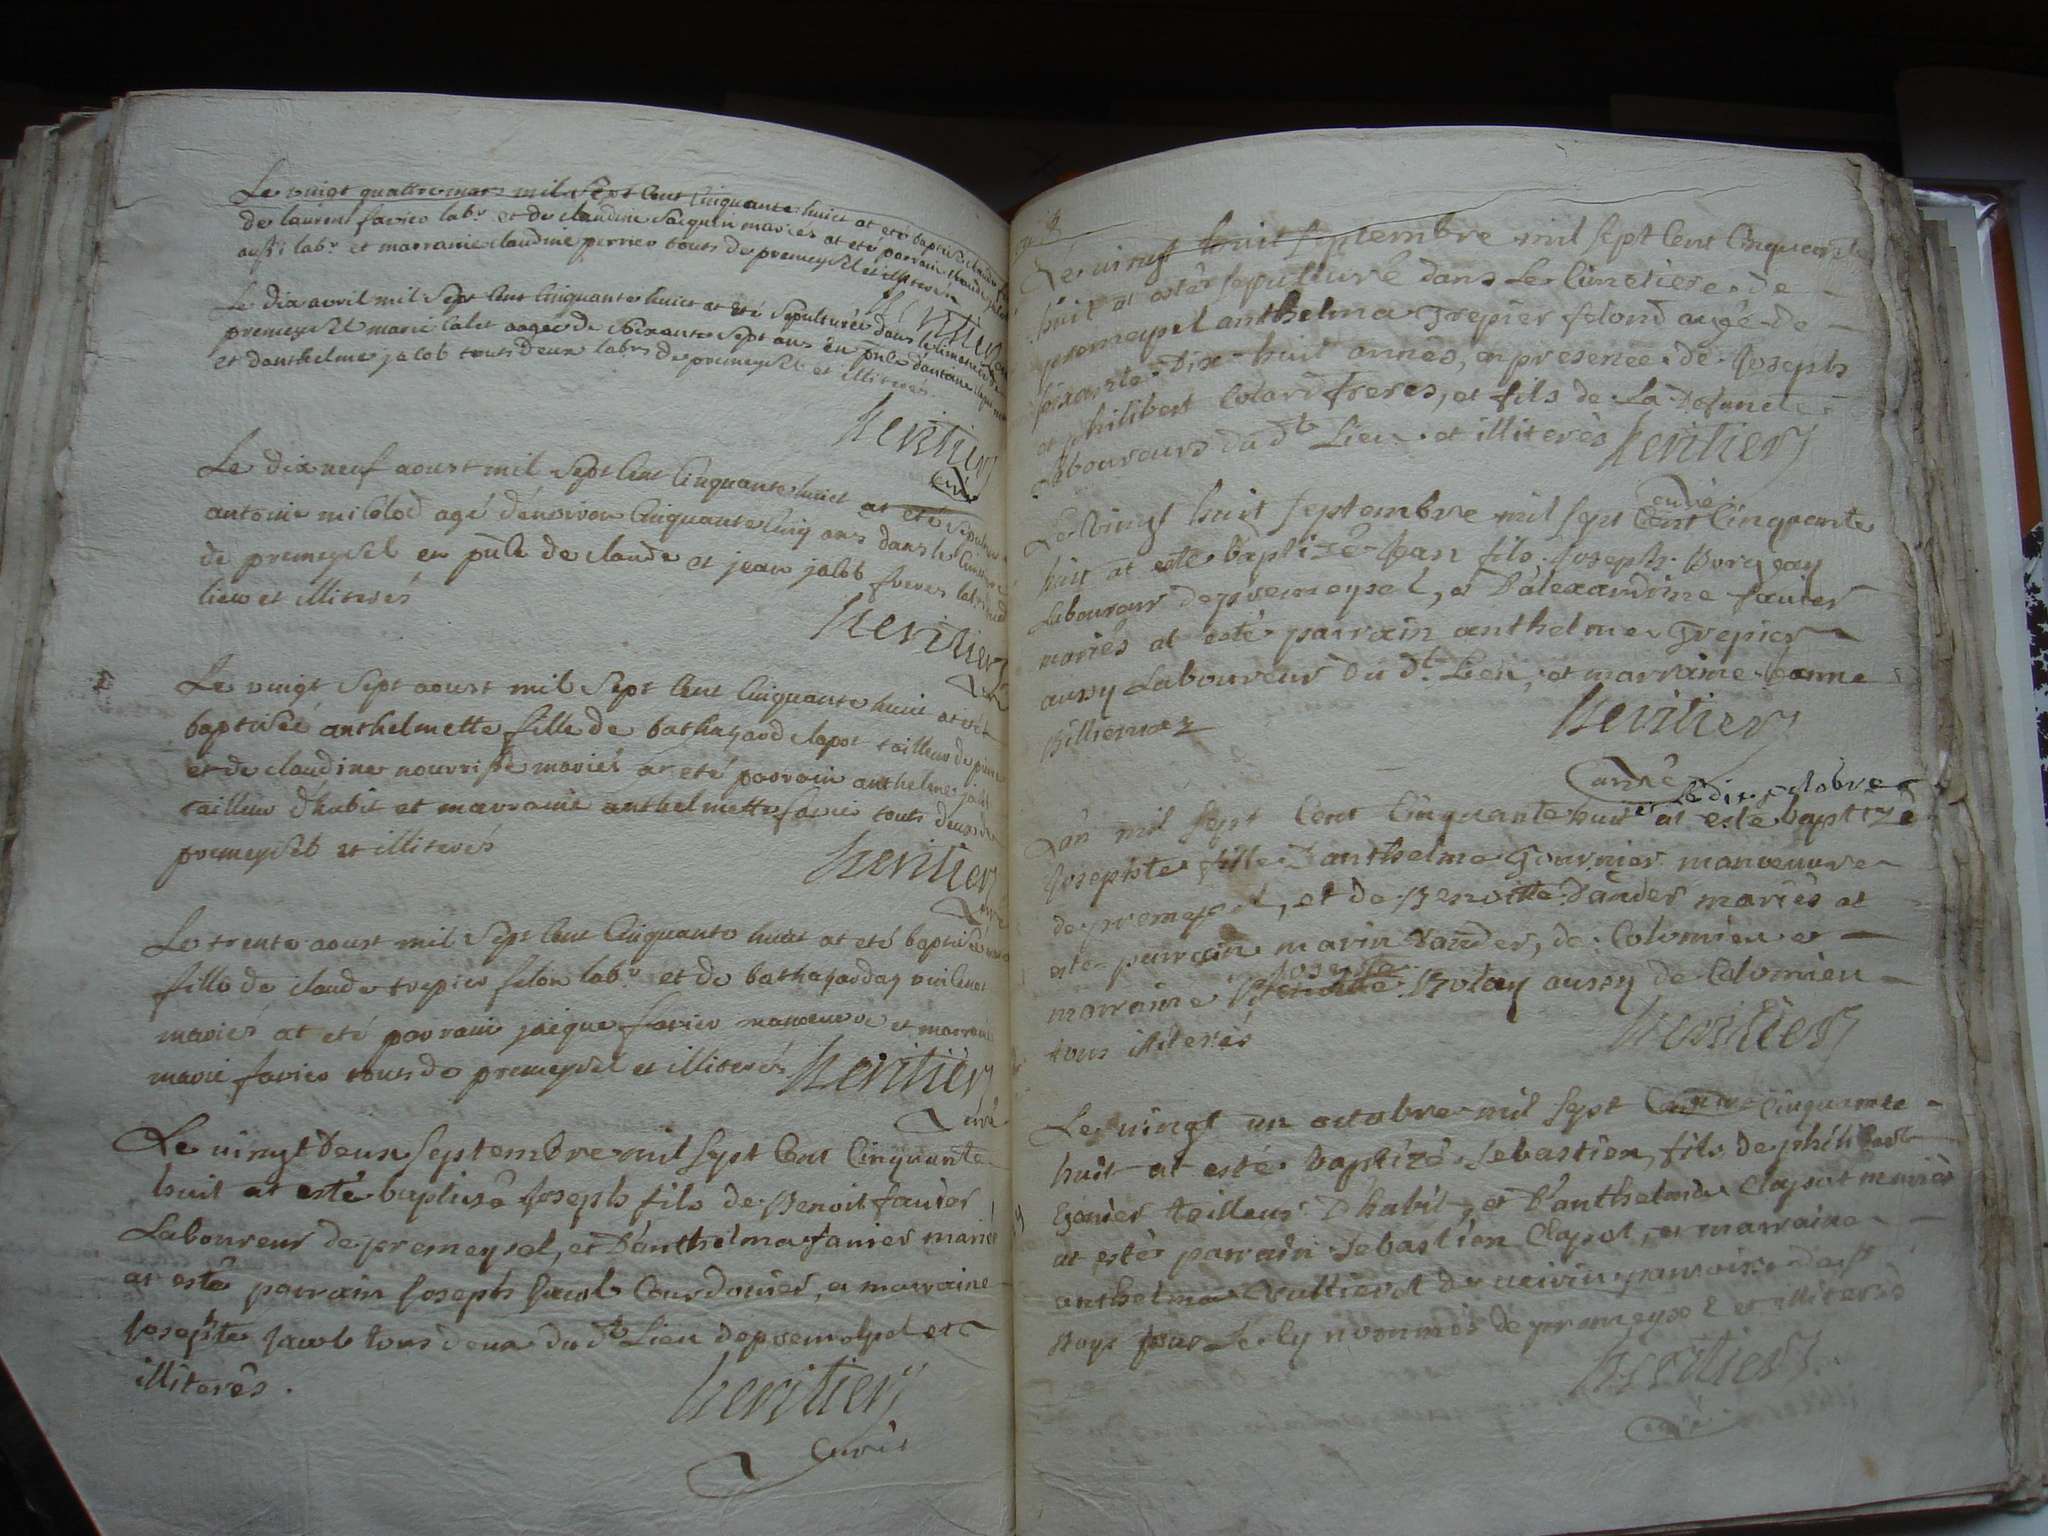 Le vingt quattre mars mil sept cent cinquante huict at eté baptisé claude
de laurent favier labr et de claudine Jacquin mariés at eté parrain claude
aussi labr et marraine claudine perrier touts de premeysel et illiterés
heritier
Le dix avril mil sept cent cinquante huict at eté sepulturée dans le cimetiere de
premeysel marie Calet aagee de soixante sept ans en pnce dantoine
et danthelme jacob touts deux labrs de premeysel et illiterés
heritier
curé
Le dix neuf aoust mil sept cent cinquante huict at eté sepulturé
antoine agé denviron cinquante cinq ans dans le cimetiere
de premeysel en pnce de claude et jean jacob freres labrs dud
lieu et illiterés
heritier
curé
Le vingt sept aoust mil sept cent cinquante huict at eté
baptisée anthelmette fille de bathazard clapot tailleur de pierre
et de claudine nourrisse mariés at eté parrain anthelme jacob
tailleur dhabit et marraine anthelmette favier touts deux de
premeysel et illiterés
heritier
curé
Le trente aoust mil sept cent cinquante huict at eté baptisée
fille de claude trepier felon labr et de bathazarda
mariés at eté parrain jacque favier manoeuvre et marraine
marie favier touts de premeysel et illiterés heritier
curé
Le vingt deux septembre mil sept cent cinquante
huit at esté baptisé Joseph fils de Benoit favier
Laboureur de premeysel, et D'anthelma favier mariés
at esté parrain Joseph Jacob Courdonier, et marraine
Josephte Jacob tous deux du dt Lieu de premeysel et
illiterés.
heritier
Curé
Le vingt huit septembre mil sept cent cinquante
huit at estée sepulturé dans Le Cimetiere de
premeysel anthelma Trepier felond augé de
soixante Dix huit années, en presence de Joseph
et philibert Colard freres, et fils de La Defuncte
Laboureurs du dt Lieu et illiterés heritier
curé
Le vingt huit septembre mil sept cent cinquante
huit at esté baptizé Jean fils Joseph Borgeay
Laboureur de premeysel, et D'alexandrine favier
mariés at esté parrain anthelme Trepier
aussy Laboureur du dt Lieu, et marraine Janne
Billiemaz
heritier
Curé
Le dix octobre
L'an mil sept cent cinquante huit at esté baptizé
Josephte fille D'anthelme Gournier manoeuvre
de premeysel, et de Benoitte Dander mariés at
esté parrain marin Dander, de Colomieu et
Josephte
marraine Benoitte Rolay aussy de Colomieu
tous illiterés
heritier
curé
Le vingt un octobre mil sept Cent cinquante
huit at esté Baptizé Sebastien, fils de philibert
tailleur D'habit, et D'anthelma Clapot mariés
at esté parrain Sebastien Clapot, et marraine
anthelma de paroisse de st
de premeysel et illiterés
heritier
curé